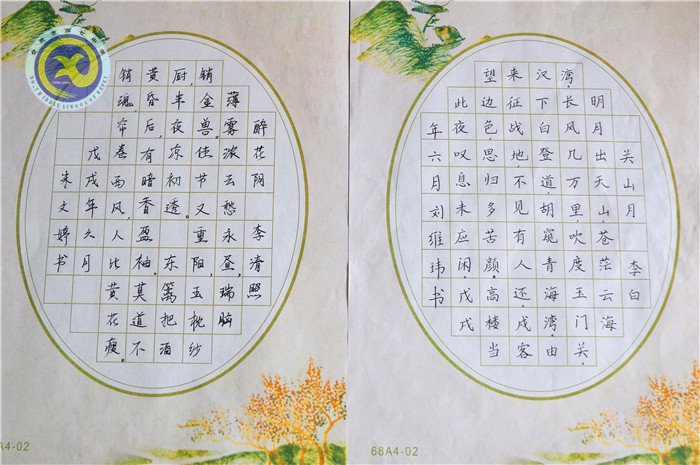 合肥市第七中学
NO.7 MIDDLE SCHOOL OF HEFEI
醉花阴 李清照
薄雾浓云愁永昼,瑞脑
销金兽。佳节又重阳,玉枕纱
厨,半夜凉初透。 东篱把酒
黄昏后,有暗香盈袖。莫道不
销魂帘卷西风,人比黄花瘦。
戊戌年久月
朱文婷书
A4-02
关山月 李白
明月出天山,苍茫云海
湾。长风几万里,吹度玉门关。
汉下白登道,胡窥青海湾。由
来征战地,不见有人还,戍客
望边色思归多苦颜。高楼当
此夜叹息未应闲。戊戌
年六月刘维玮书
68A4-02